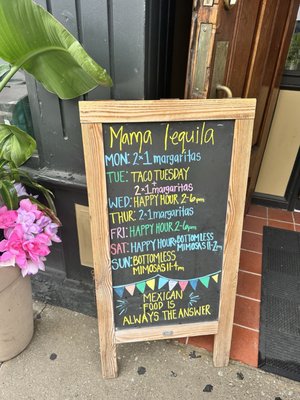 Mama Tequila
MON: 2×1 margaritas
TUE: TACO TUESDAY
2×1 margaritas
WED: HAPPY HOUR 2-6pm
THUR: 2×1 margaritas
FRI: HAPPY HOUR 2-6pm
SAT: HAPPY HOUR BOTTOMLESS
MIMOSAS 11-2pm
SUN: BOTTOMLESS
MIMOSAS 11-4pm
MEXICAN
FOOD IS
ALWAYS THE ANSWER